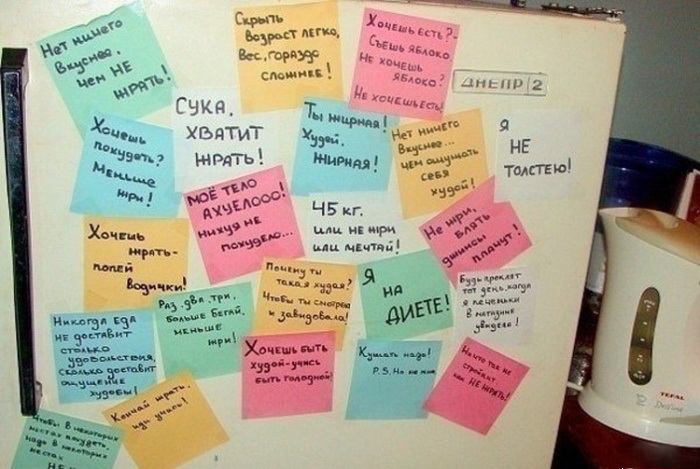 Нет ничего
вкуснее,
чем НЕ
ЖРАТЬ!
Скрыть
возраст легко,
Вес, гораздо
сложнее!
Хочешь есть?-
Съешь яблоко.
Не хочешь
яблоко?
Не хочешь есть!
ДНЕПР 2
Хочешь
похудеть?
Меньше
жри!
СУКА,
ХВАТИТ
ЖРАТЬ!
Ты жирная!
Худей,
ЖИРНАЯ!
Нет ничего
Вкуснее...
чем ощущать
себя
худой!
Я
НЕ
ТОЛСТЕЮ!
МОЁ ТЕЛО
АХУЕЛООО!
нихуя не
похудело...
45 кг.
или не жри
или мечтай!
Не жри,
блять
джинсы
плачут!
Хочешь
жрать-
попей
водички!
Почему ты
такая худая?
Чтобы ты смотрела
и завидовала!
Я
НА
ДИЕТЕ!
Будь проклят
тот день, когда
я печеньки
в магазине
увидела!
Никогда еда
не доставит
столько
удовольствия,
сколько доставит
ощущение
худобы!
Раз, два, три,
больше бегай,
меньше
жри!
Хочешь быть
худой-учись
быть голодной!
Кушать надо!
P.S. Но не мне
Ничто так не
стройнит,
как НЕ ЖРАТЬ!
Кончай жрать,
иди учись!
Чтобы в некоторых
местах похудеть,
надо в некоторых
местах
НЕ
TEFAL